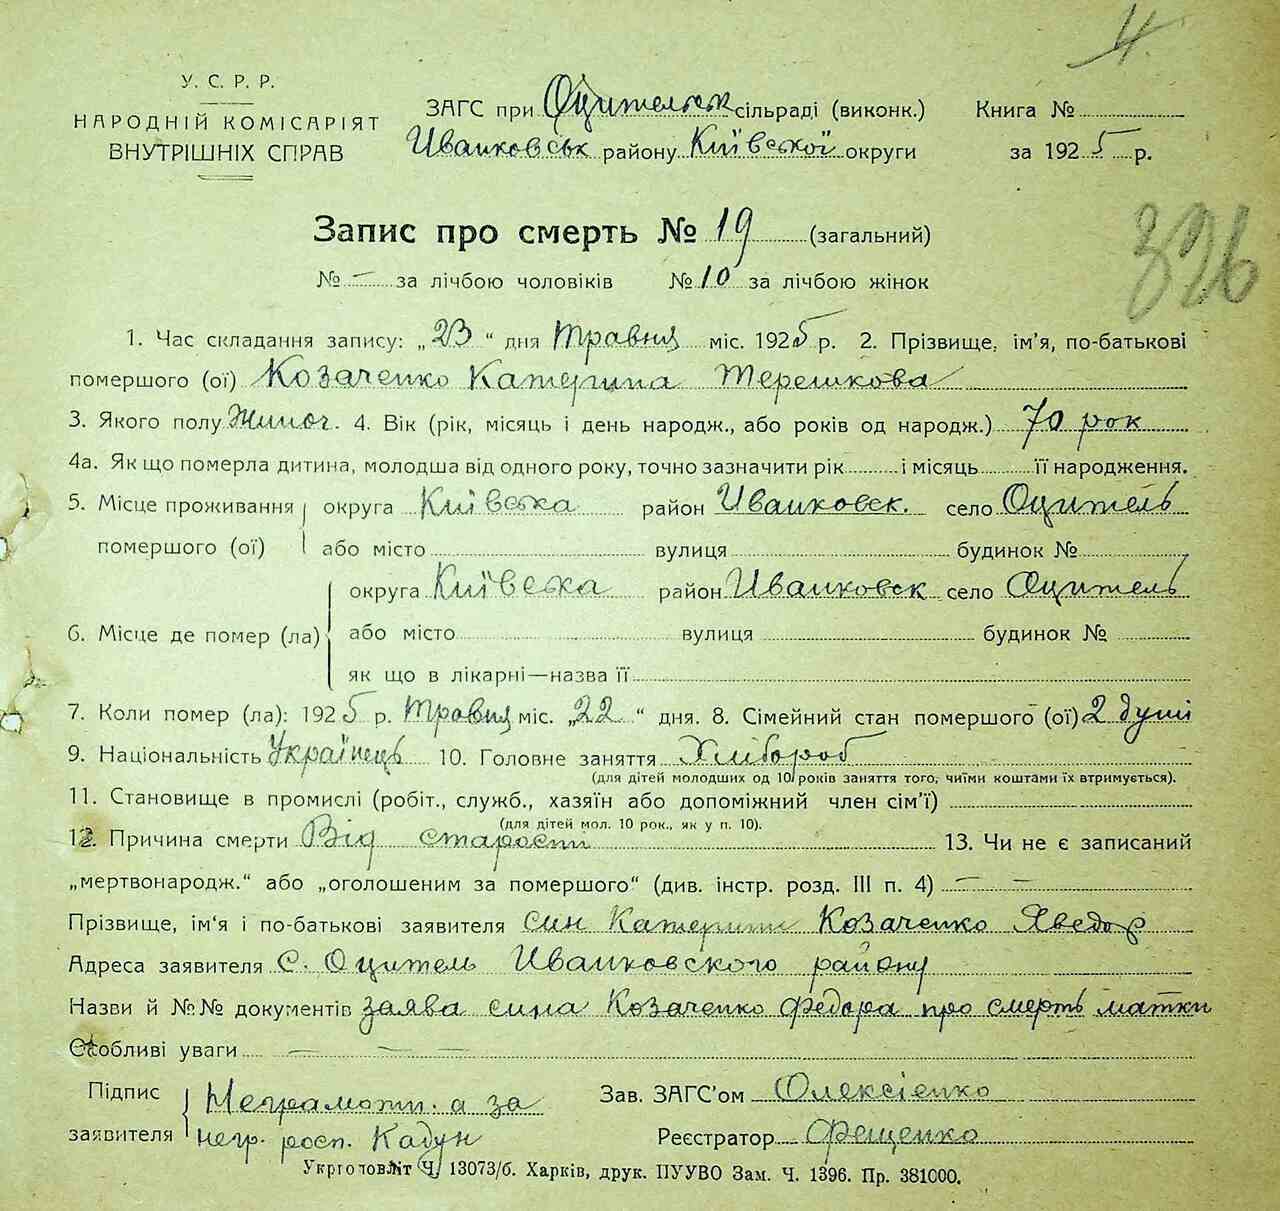 4.
У. С. Р. Р.
НАРОДНІЙ КОМІСАРІЯТ
ВНУТРІШНІХ СПРАВ
ЗАГС при Оцительск сільраді (виконк.)
Иванковськ району Київської округи
Книга №
за 1925 р.
326
Запис про смерть № 19 (загальний)
№ – за лічбою чоловіків № 10 за лічбою жінок
1. Час складання запису: „23“ дня Травня міс. 1925 р. 2. Прізвище, ім'я, по-батькові
помершого (ої) Козаченко Катерина Терешкова
3. Якого полу Жиноч. 4. Вік (рік, місяць і день народж., або років од народж.) 70 рок
4а. Як що померла дитина, молодша від одного року, точно зазначити рік і місяць її народження.
5. Місце проживання округа Київська район Иванковск. село Оцитель
помершого (ої) або місто вулиця будинок №
округа Київська район Иванковск село Оцитель
6. Місце де помер (ла) або місто вулиця будинок №
як що в лікарні—назва її
7. Коли помер (ла): 1925 р. Травня міс. „22“ дня. 8. Сімейний стан помершого (ої) 2 душі
9. Національність Українець 10. Головне заняття Хлібороб
(для дітей молодших од 10 років заняття того, чиїми коштами їх втримується).
11. Становище в промислі (робіт., служб., хазяїн або допоміжний член сім'ї)
(для дітей мол. 10 рок., як у п. 10).
12. Причина смерти Від старости 13. Чи не є записаний
„мертвонародж.“ або „оголошеним за помершого“ (див. інстр. розд. III п. 4) – –
Прізвище, ім'я і по-батькові заявителя син Катерини Козаченко Хведор
Адреса заявителя С. Оцитель Иванковского району
Назви й №№ документів заява сина Козаченко Федора про смерть матки
Особливі уваги – – –
Підпис
заявителя
Неграмотн. а за
негр. росп. Кадун
Зав. ЗАГС'ом Олексієнко
Реєстратор Фещенко
Укрголовліт Ч. 13073/б. Харків, друк. ПУУВО Зам. Ч. 1396. Пр. 381000.